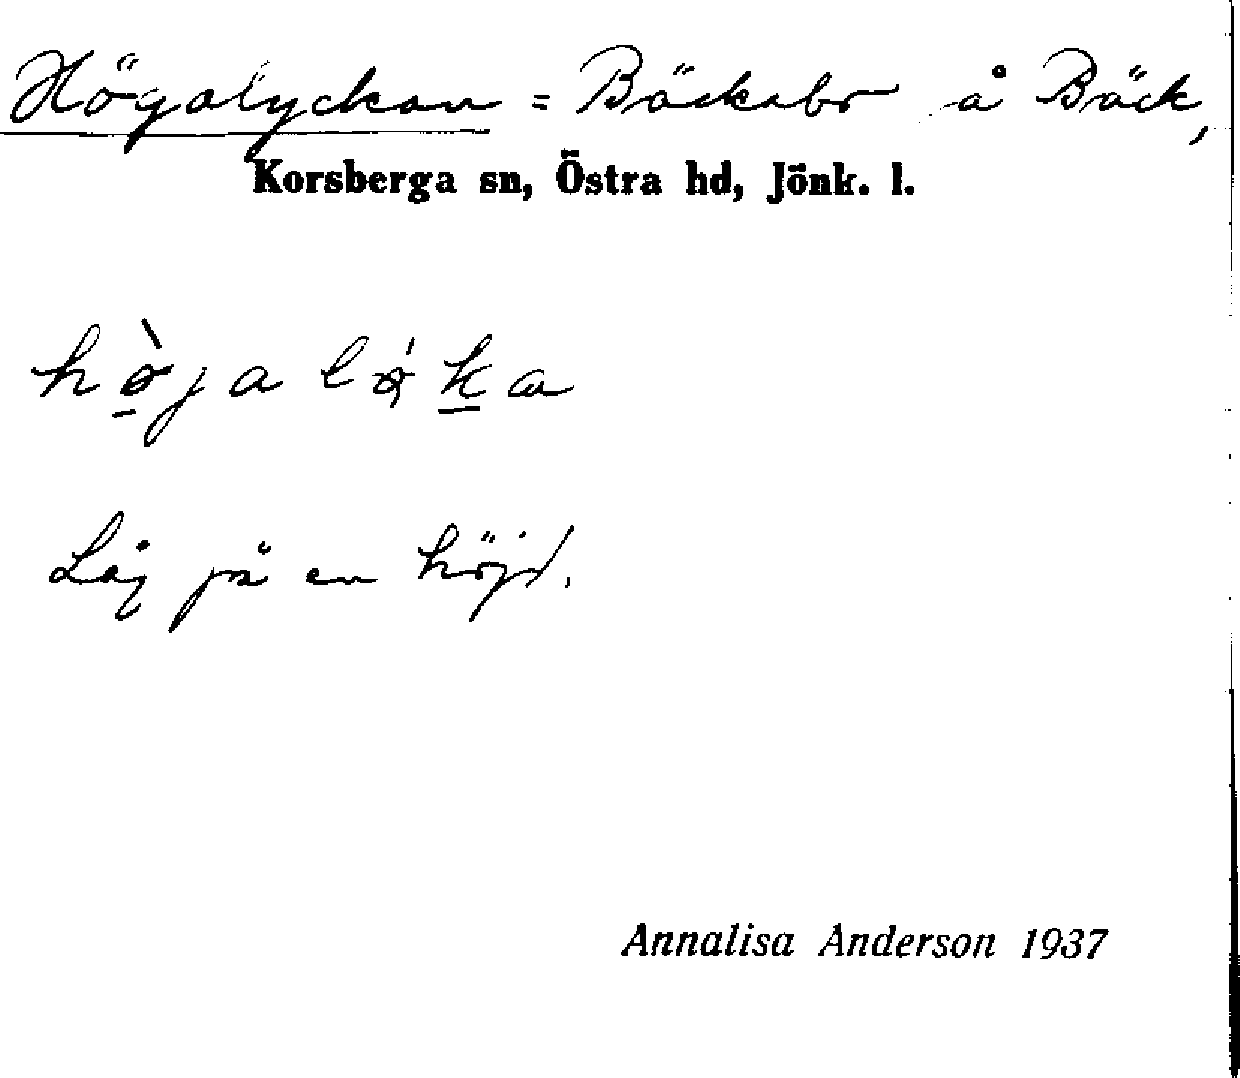 Högalyckan = Bäckabo å Bäck,
Korsberga sn, Östra hd, Jönk. l.
Låg på en höjd.
Annalisa Anderson 1937